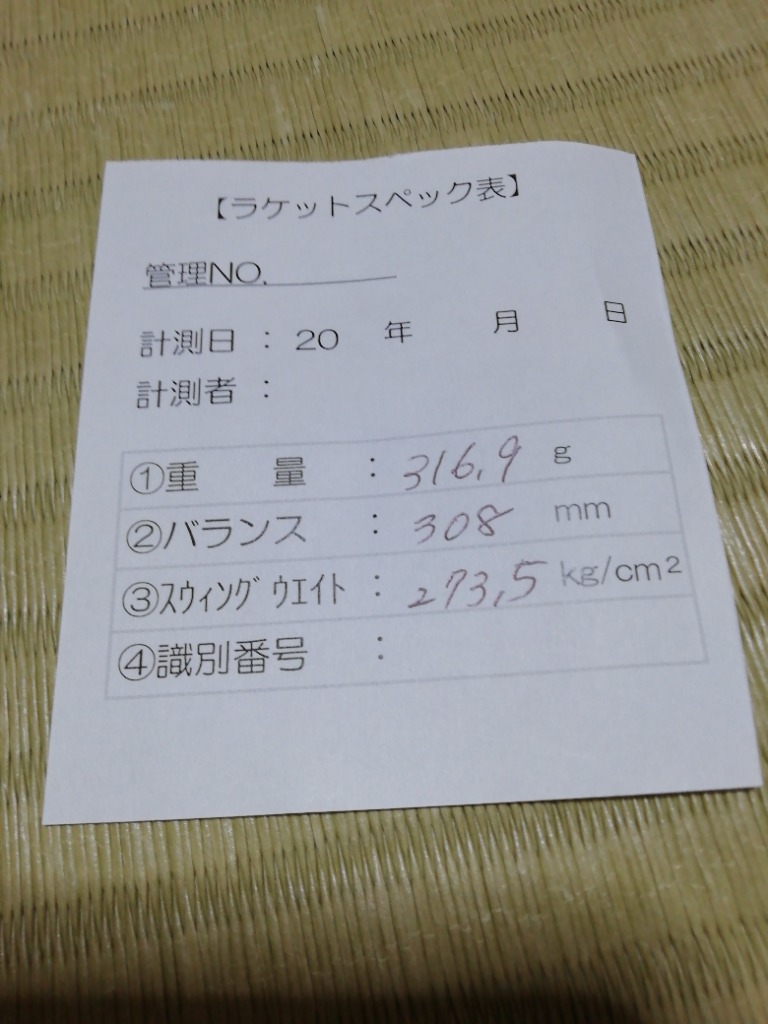 【ラケットスペック表】
管理NO.
計測日 : 20 年 月 日
計測者 :
①重 量 : 316.9 g
②バランス : 308 mm
③ｽｳｨﾝｸﾞ ｳｴｲﾄ : 273.5 kg/cm²
④識別番号 :